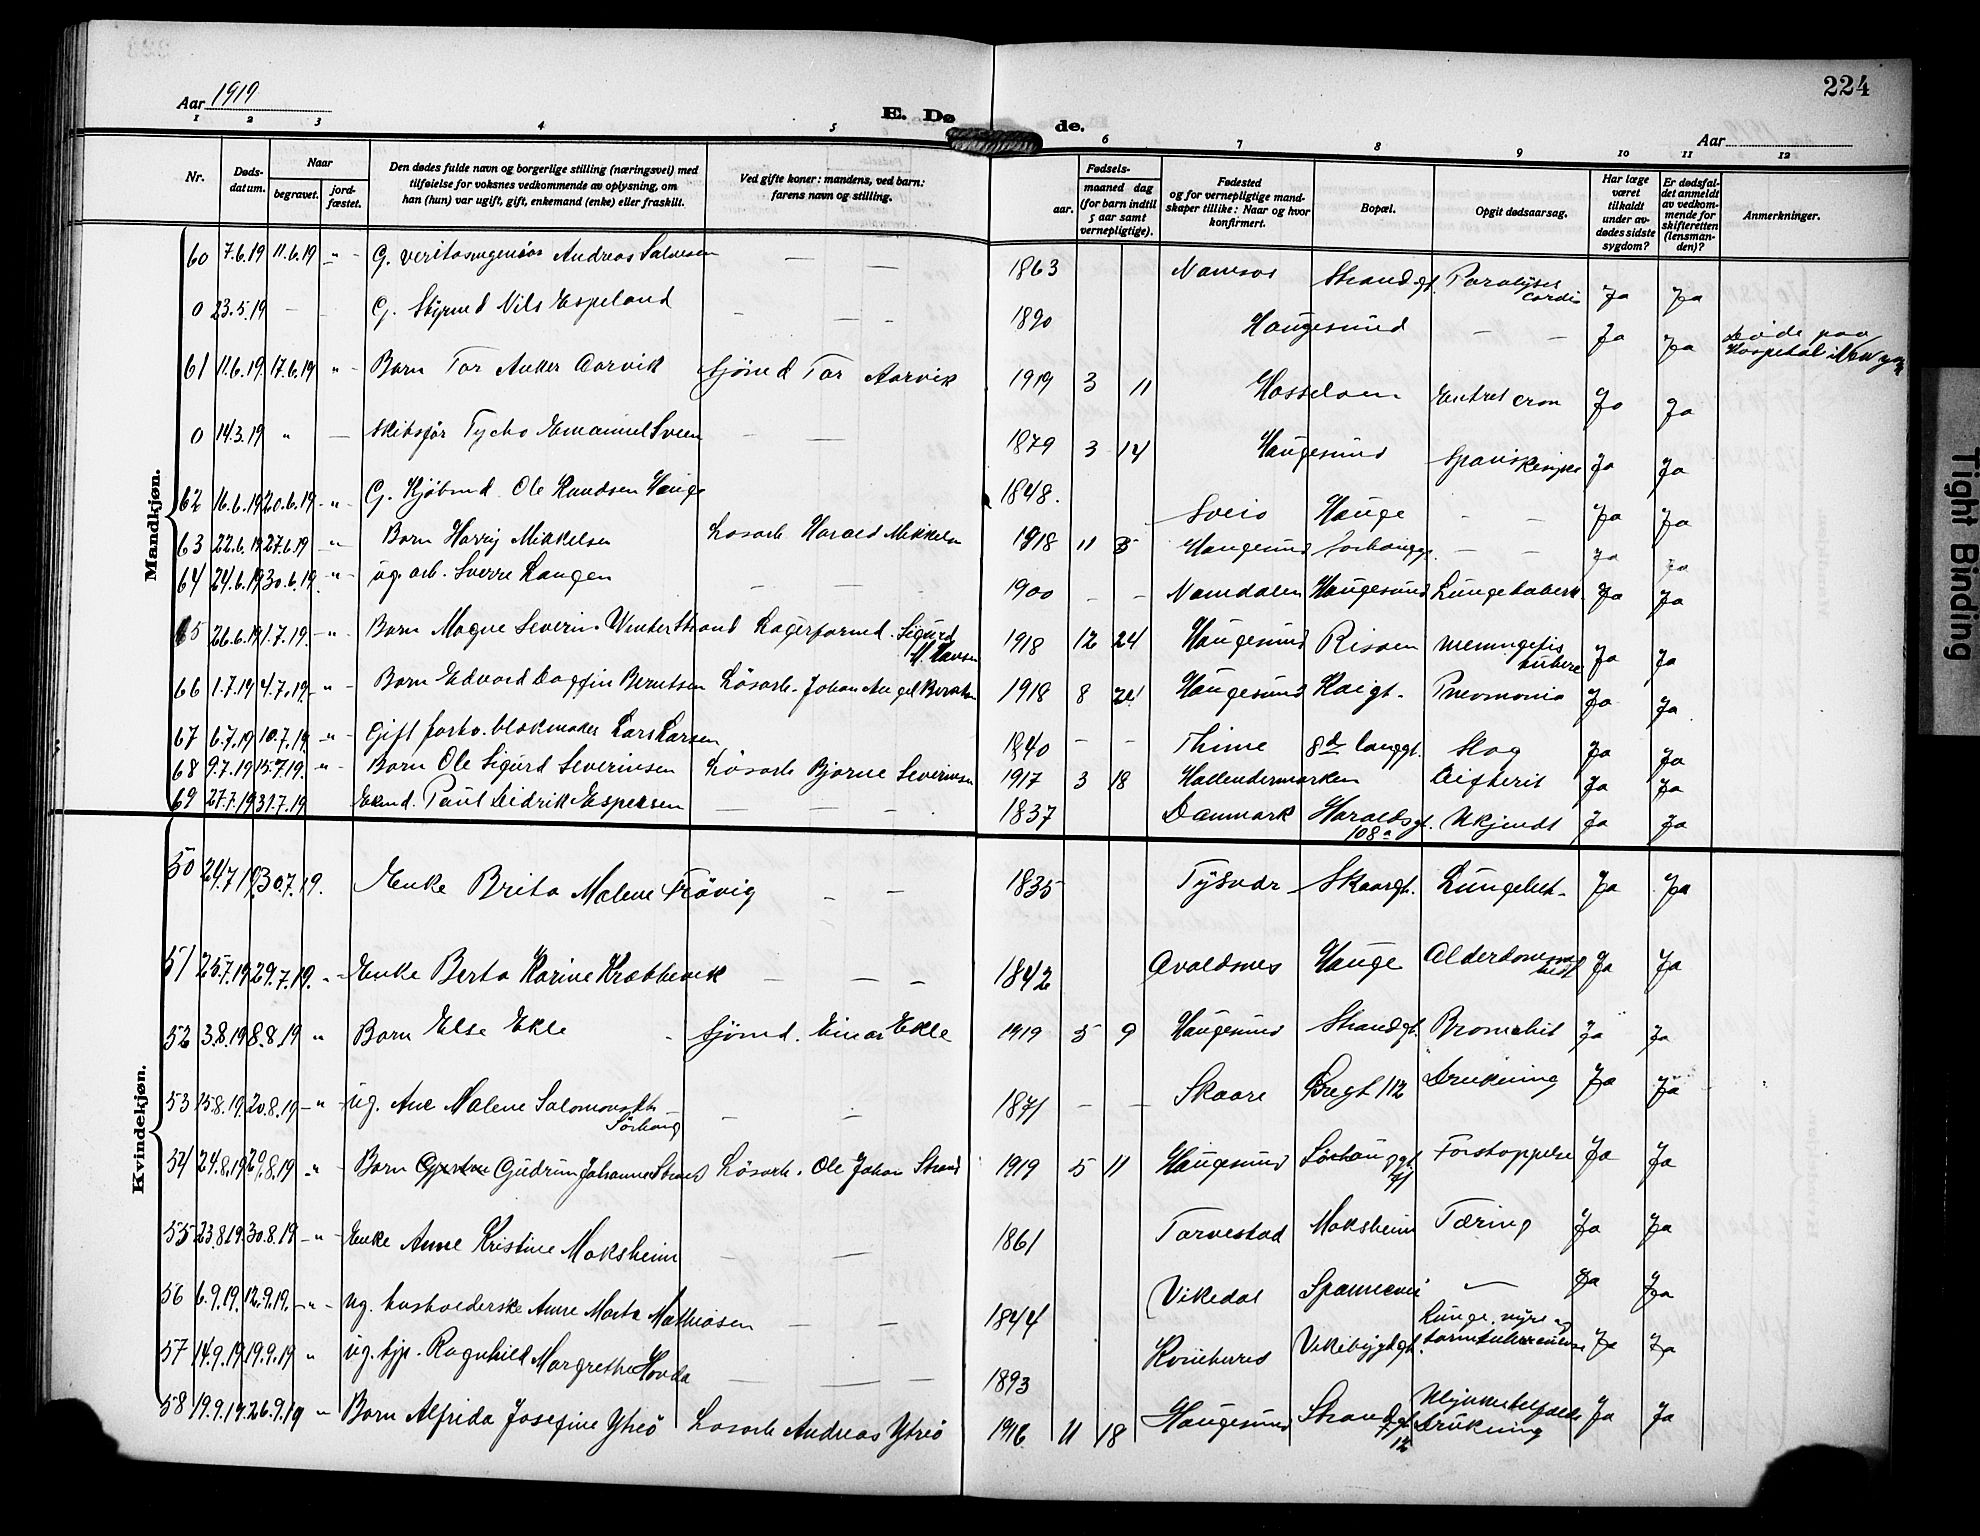 224
Aar 1919
E. Dø de.
Aar
1 2 3 4 5 6 7 8 9 10 11 12
Nr.
Døds-datum.
Naar
begravet.
jord-fæstet.
Den dødes fulde navn og borgerlige stilling (næringsvei) med
tilføielse for voksnes vedkommende av oplysning, om
han (hun) var ugift, gift, enkemand (enke) eller fraskilt.
Ved gifte koner: mandens, ved barn:
farens navn og stilling.
Fødsels-
aar.
maaned dag
(for barn indtil
5 aar samt
vernepligtige).
Fødested
og for vernepligtige mand-
skaper tillike: Naar og hvor
konfirmert.
Bopæl.
Opgit dødsaarsag.
Har læge
været
tilkaldt
under av-
dødes sidste
sygdom?
Er dødsfal-
det anmeldt
av vedkom-
mende for
skifteretten
(lensman-
den)?
Anmerkninger.
Mandkjøn.
60 7.6.19 11.6.19 " G. veritasingeniør Andreas Salvesen — — 1863 Namsos Strandgt. Paralysis cordis Ja Ja
0 23.5.19 — — G. Styrmd Nils Espeland — — — 1890 Haugesund — — Ja Ja Døde paa Hospital i New york
61 11.6.19 17.6.19 " Barn Tor Anker Aarvik Sjömd Tor Aarvik 1919 3 11 Hasseloen Ja Ja
0 14.3.19 " — Skibsfør Tycho Emanuel Sveen — — 1879 3 14 Haugesund Ja Ja
62 16.6.19 20.6.19 " G. Kjöbmd Ole Knudsen Hauge 1848. Sveio Hauge — — Ja Ja
63 22.6.19 27.6.19 " Barn Harry Mikkelsen Losarb Harald Mikkelsen 1918 11 5 Haugesund — — Ja Ja
64 24.6.19 30.6.19 " ug. arb. Sverre Langen — — 1900 — — Namdalen Haugesund Lungetuberk. Ja Ja
65 26.6.19 1.7.19 " Barn Magne Severin Winterstrand Lagerformd. Sigurd M. Hansen 1918 12 24 Haugesund Risøen meningitis tuberc Ja Ja
66 1.7.19 4.7.19 " Barn Edvard Dagfin Berntsen Lösarb. Johan Berntsen 1918 8 24 Haugesund Kaigt. Pneomonia Ja Ja
67 6.7.19 10.7.19 " Gift blokmaker Lars Larsen 1840 — — Thime 8de langgt. Slag Ja Ja
68 9.7.19 15.7.19 " Barn Ole Sigurd Severinsen Lösarb Bjarne Severinsen 1917 3 18 Hollendermarken Difterit Ja Ja
69 27.7.19 31.7.19 Ekmd. Paul Didrik Espersen — — — 1837 Danmark Haraldsgt. 108a Ukjendt Ja Ja
Kvindekjøn.
50 24.7.19 30.7.19. Enke Brita Malene Frövig — — 1835 Tysvær Skaaregt. Lungebet. Ja Ja
51 25.7.19 29.7.19. " Enke Berta Karine Krabbevik — — — 1842 Avaldsnes Hauge Alderdomssvækk Ja Ja
52 3.8.19 8.8.19 " Barn Else Ekle Sjömd. Einar Ekle 1919 5 9 Haugesund Strandgt. Bronchit Ja Ja
53 15.8.19 20.8.19 " ug. Ane Malene Salomonsdt. Sörhaug — — 1871 — — Skaare Bregt 112 Drukning Ja Ja
54 24.8.19 29.8.19 " Barn Gudrun Johanne Strand Lösarb. Ole Johan Strand 1919 5 11 Haugesund Sörhauggt. 71 Forstoppelse Ja Ja
55 23.8.19 30.8.19 " Enke Anne Kristine Moksheim — — 1861 Torvestad Moksheim Tæring Ja Ja
56 6.9.19. 12.9.19. " ug. husholderske Anne Marta Mathiasen — — 1844 Vikedal Spannevei — Ja Ja
57 14.9.19 19.9.19 " ug. tjp. Ragnhild Margrethe Hovda — — — 1893 Kvinherred Vikebygdgt. Lunge, nyre og tarmtuberculose Ja Ja
58 19.9.19 26.9.19 " Barn Alfrida Josefine Ytreö Losarb Andreas Ytreö 1916 11 18 Haugesund Strandgt. Drukning Ja Ja
Tight Binding